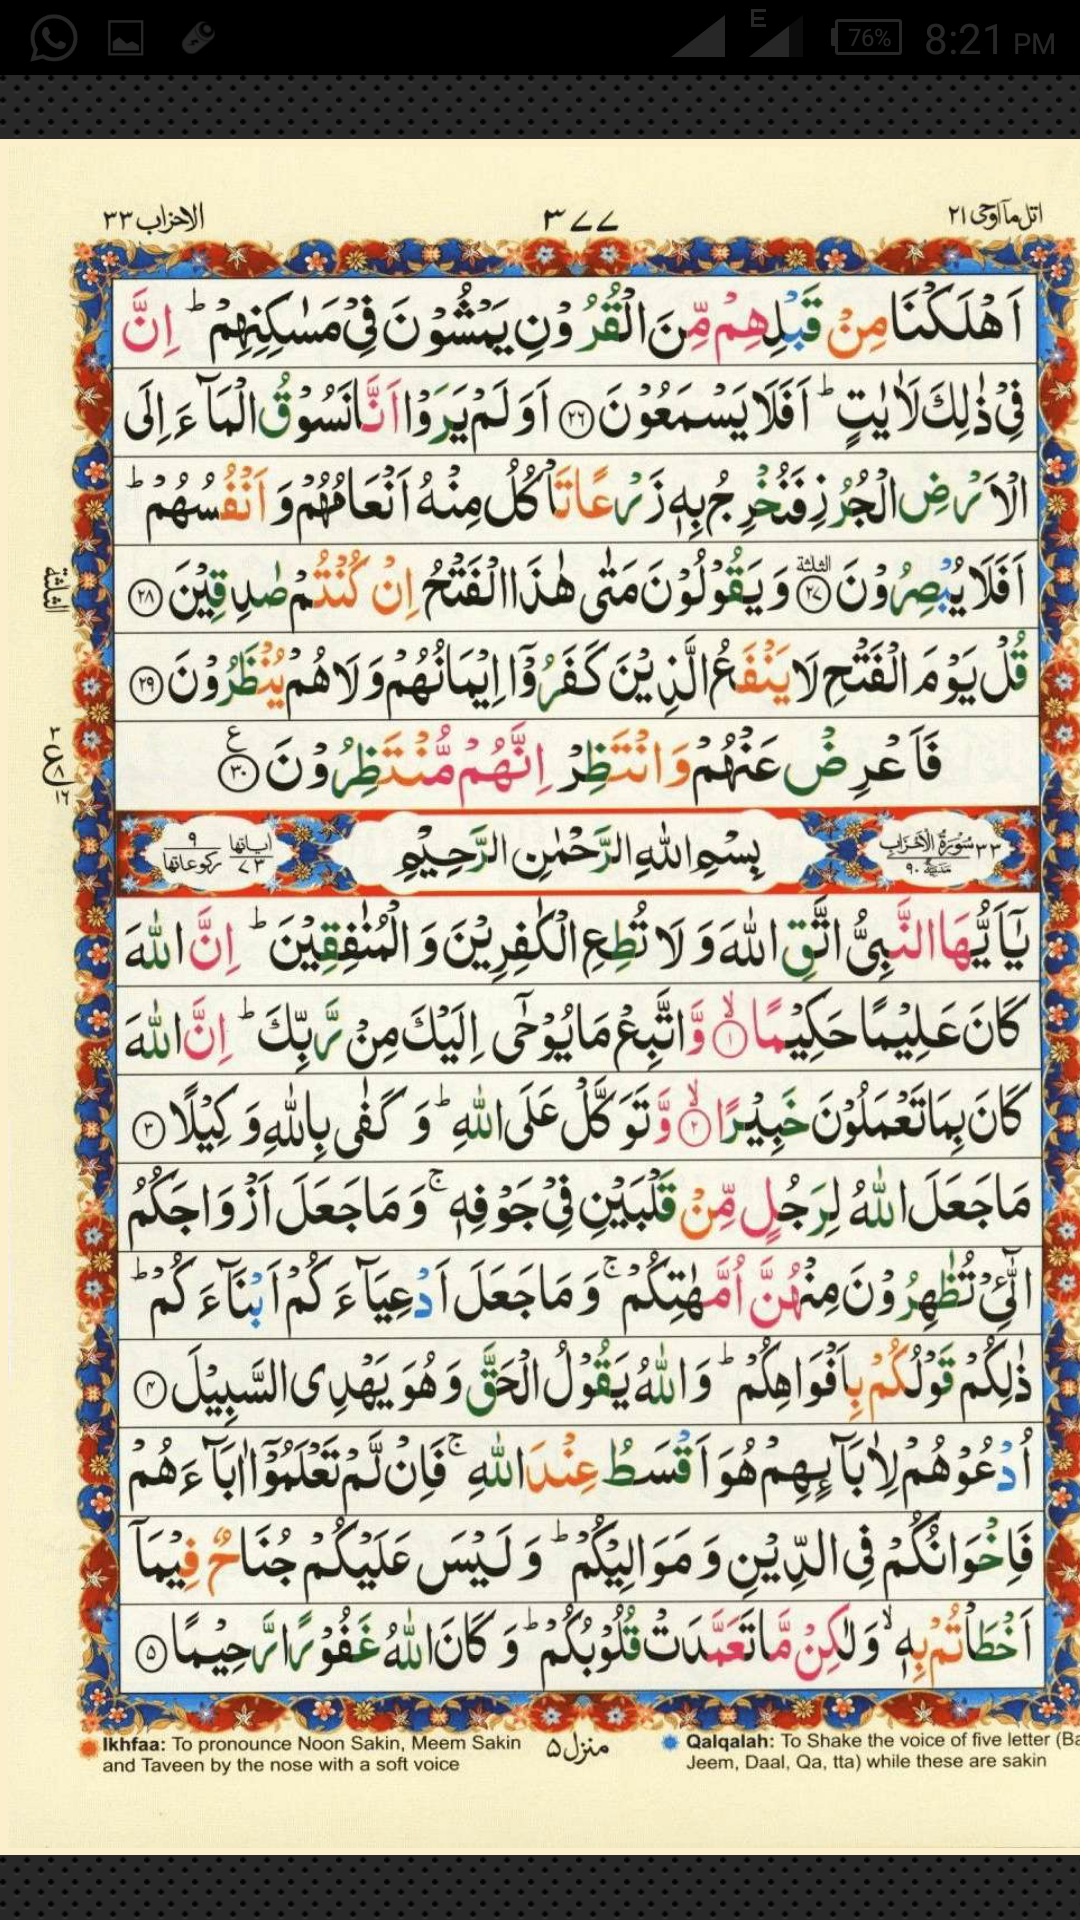 76% 8:21 PM
اتل ماۤ اوحی ۲۱ ۳۷۷ الاحزاب ۳۳
اَهْلَكْنَا مِنْ قَبْلِهِمْ مِّنَ الْقُرُوْنِ يَمْشُوْنَ فِيْ مَسٰكِنِهِمْ ؕ اِنَّ
فِيْ ذٰلِكَ لَاٰيٰتٍ ؕ اَفَلَا يَسْمَعُوْنَ ۲۶ اَوَلَمْ يَرَوْا اَنَّا نَسُوْقُ الْمَآءَ اِلَى
الْاَرْضِ الْجُرُزِ فَنُخْرِجُ بِهٖ زَرْعًا تَاْكُلُ مِنْهُ اَنْعَامُهُمْ وَ اَنْفُسُهُمْ ؕ
اَفَلَا يُبْصِرُوْنَ ۲۷ الثلثة وَ يَقُوْلُوْنَ مَتٰى هٰذَا الْفَتْحُ اِنْ كُنْتُمْ صٰدِقِيْنَ ۲۸
الثلثة
قُلْ يَوْمَ الْفَتْحِ لَا يَنْفَعُ الَّذِيْنَ كَفَرُوْٓا اِيْمَانُهُمْ وَ لَا هُمْ يُنْظَرُوْنَ ۲۹
فَاَعْرِضْ عَنْهُمْ وَ انْتَظِرْ اِنَّهُمْ مُّنْتَظِرُوْنَ ۳۰ ع
۲ ع ۸ ۱۶
۳۳ سُوْرَةُ الْاَحْزَابِ مَدَنِيَّةٌ ۹۰ بِسْمِ اللهِ الرَّحْمٰنِ الرَّحِيْمِ اياتها ۷۳ ركوعاتها ۹
يٰٓاَيُّهَا النَّبِيُّ اتَّقِ اللهَ وَ لَا تُطِعِ الْكٰفِرِيْنَ وَ الْمُنٰفِقِيْنَ ؕ اِنَّ اللهَ
كَانَ عَلِيْمًا حَكِيْمًا ۱ۙ وَّ اتَّبِعْ مَا يُوْحٰٓى اِلَيْكَ مِنْ رَّبِّكَ ؕ اِنَّ اللهَ
كَانَ بِمَا تَعْمَلُوْنَ خَبِيْرًا ۲ۙ وَّ تَوَكَّلْ عَلَى اللهِ ؕ وَ كَفٰى بِاللهِ وَكِيْلًا ۳
مَا جَعَلَ اللهُ لِرَجُلٍ مِّنْ قَلْبَيْنِ فِيْ جَوْفِهٖ ۚ وَ مَا جَعَلَ اَزْوَاجَكُمُ
الّٰٓـِٔيْ تُظٰهِرُوْنَ مِنْهُنَّ اُمَّهٰتِكُمْ ۚ وَ مَا جَعَلَ اَدْعِيَآءَكُمْ اَبْنَآءَكُمْ ؕ
ذٰلِكُمْ قَوْلُكُمْ بِاَفْوَاهِكُمْ ؕ وَ اللهُ يَقُوْلُ الْحَقَّ وَ هُوَ يَهْدِي السَّبِيْلَ ۴
اُدْعُوْهُمْ لِاٰبَآئِهِمْ هُوَ اَقْسَطُ عِنْدَ اللهِ ۚ فَاِنْ لَّمْ تَعْلَمُوْٓا اٰبَآءَهُمْ
فَاِخْوَانُكُمْ فِي الدِّيْنِ وَ مَوَالِيْكُمْ ؕ وَ لَيْسَ عَلَيْكُمْ جُنَاحٌ فِيْمَآ
اَخْطَاْتُمْ بِهٖ ۙ وَلٰكِنْ مَّا تَعَمَّدَتْ قُلُوْبُكُمْ ؕ وَ كَانَ اللهُ غَفُوْرًا رَّحِيْمًا ۵
Ikhfaa: To pronounce Noon Sakin, Meem Sakin
and Taveen by the nose with a soft voice
منزل ۵
Qalqalah: To Shake the voice of five letter (Ba
Jeem, Daal, Qa, tta) while these are sakin